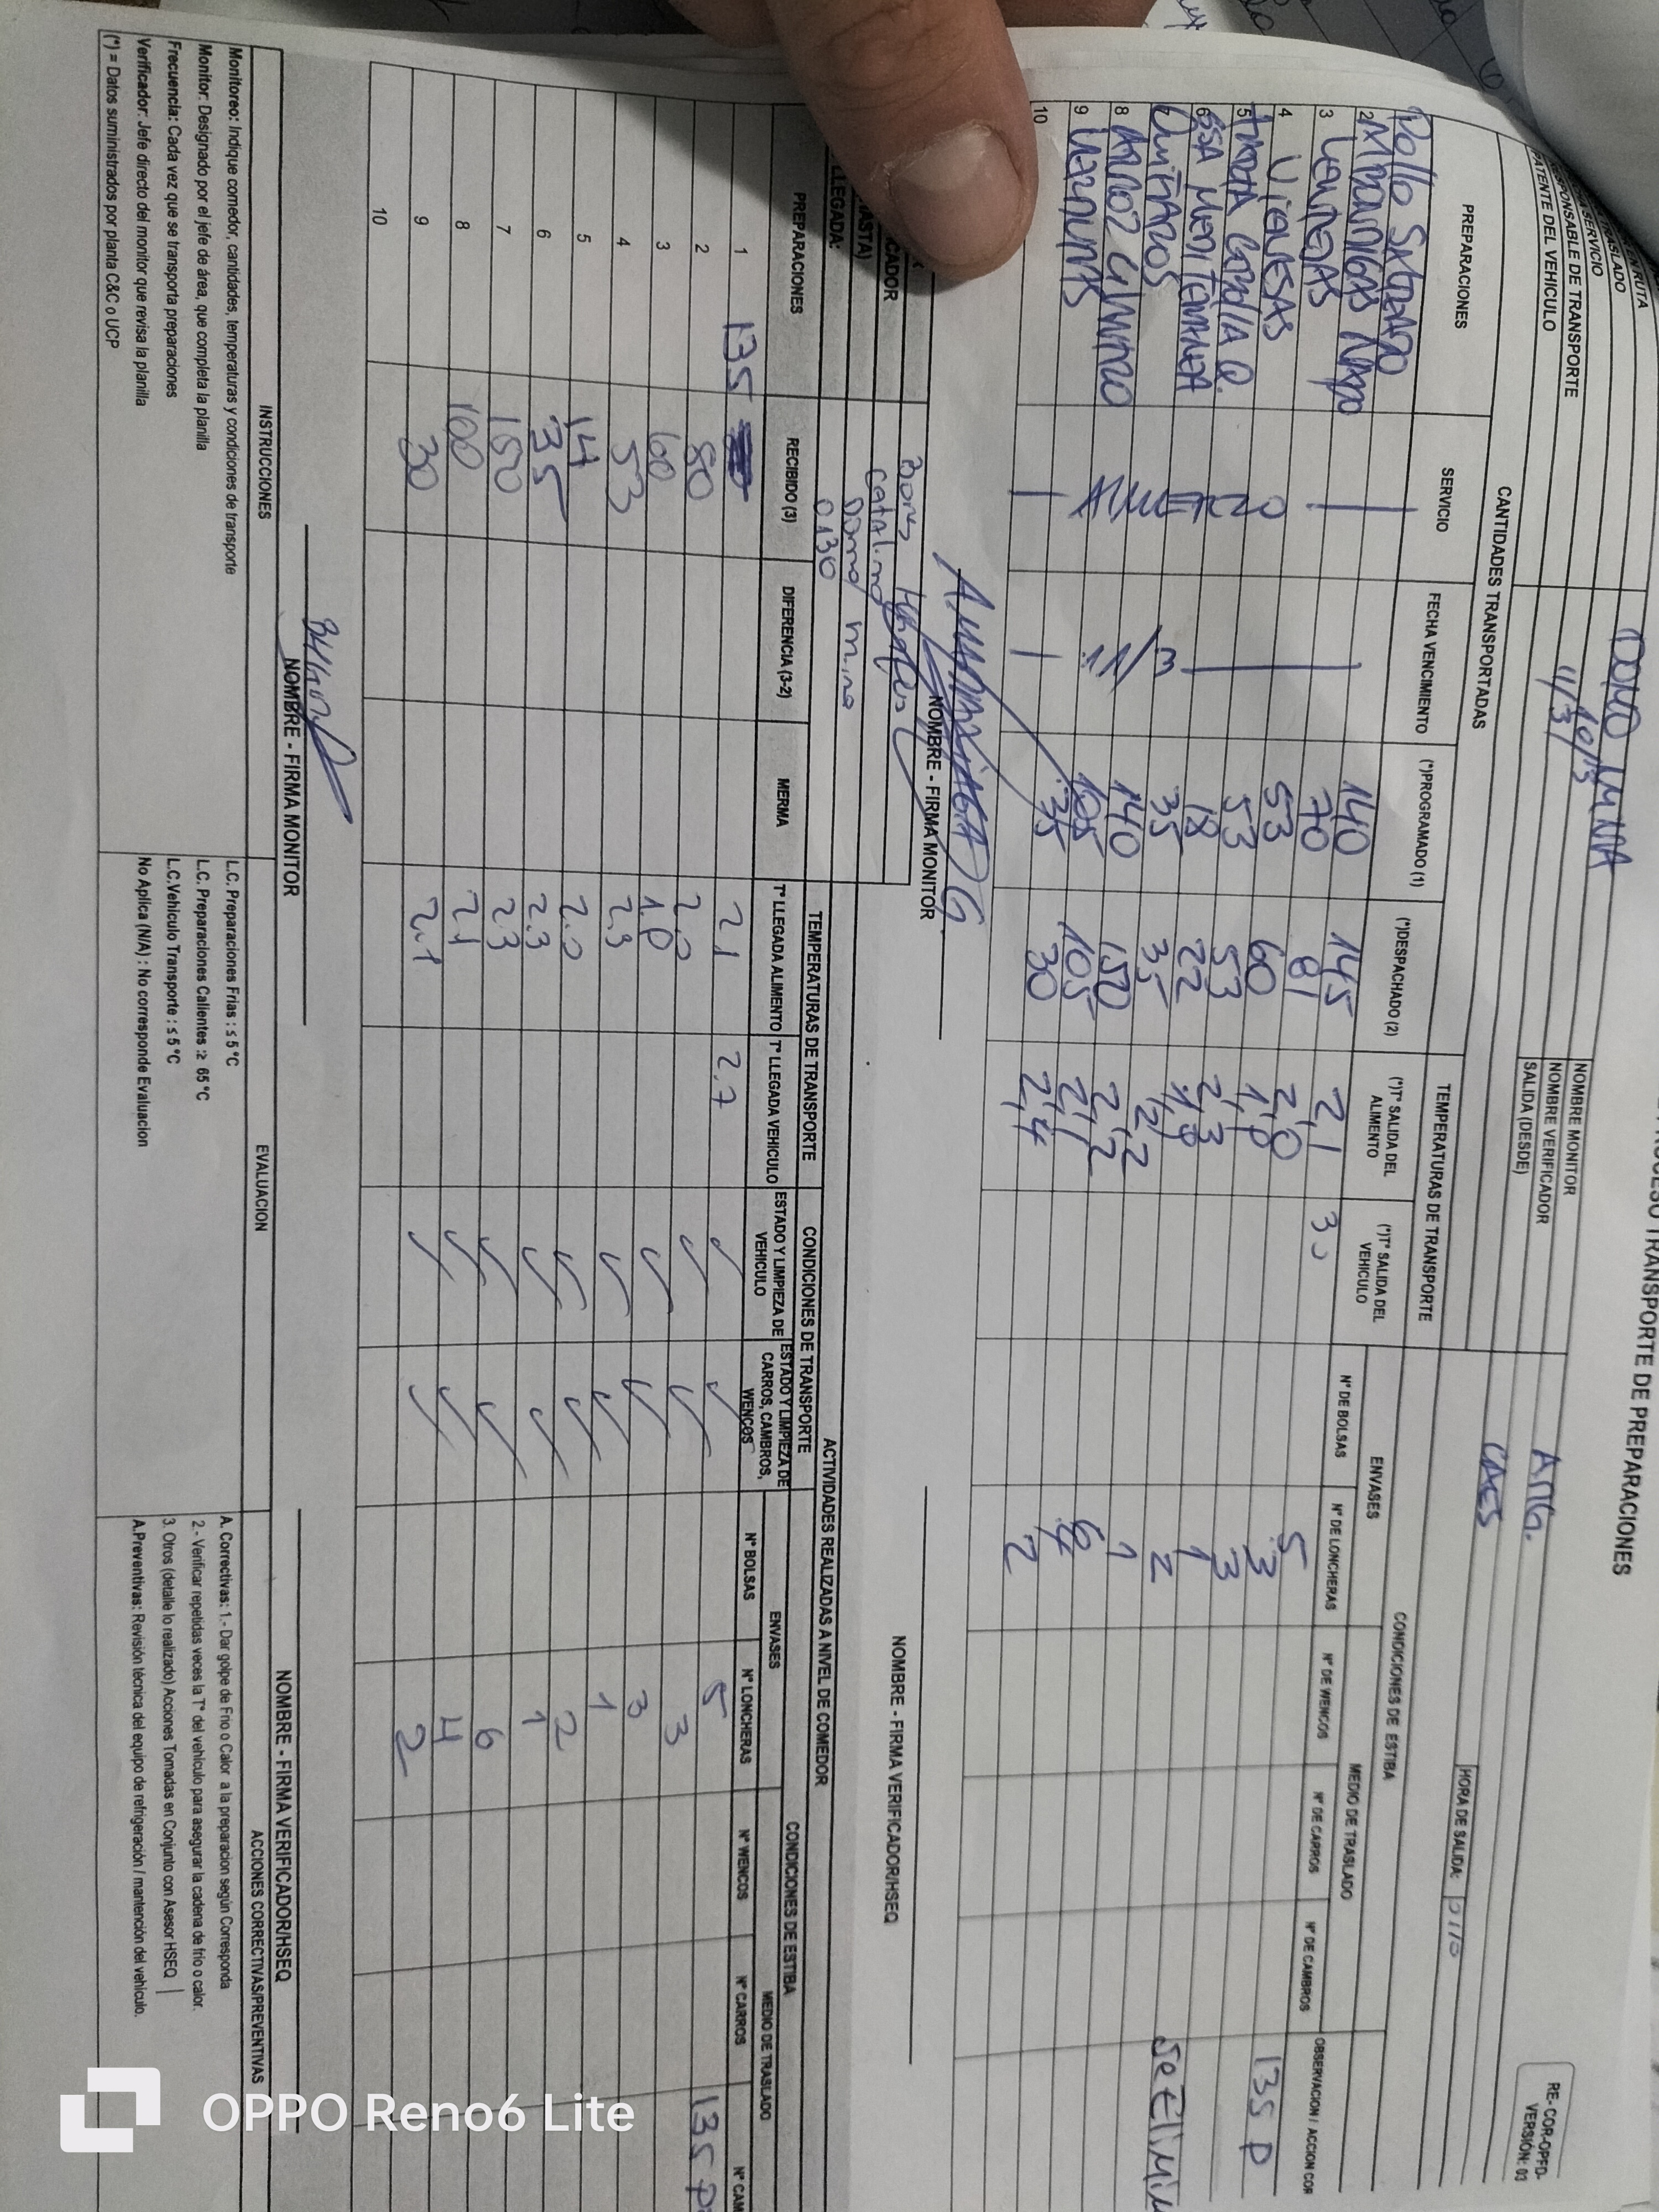 PROCESO TRANSPORTE DE PREPARACIONES
RE-COR-OPFD-
VERSIÓN: 03
RUTA
TRASLADO
DOMO MINA
SERVICIO
10/3
RESPONSABLE DE TRANSPORTE
11/3
PATENTE DEL VEHICULO
NOMBRE MONITOR
NOMBRE VERIFICADOR
ANG.
SALIDA (DESDE)
CAES
HORA DE SALIDA: 0110
CANTIDADES TRANSPORTADAS
TEMPERATURAS DE TRANSPORTE
CONDICIONES DE ESTIBA
ENVASES
MEDIO DE TRASLADO
PREPARACIONES
SERVICIO
FECHA VENCIMIENTO
(*)PROGRAMADO (1)
(*)DESPACHADO (2)
(*)T° SALIDA DEL ALIMENTO
(*)T° SALIDA DEL VEHICULO
N° DE BOLSAS
N° DE LONCHERAS
N° DE WENCOS
N° DE CARROS
N° DE CAMBROS
OBSERVACION / ACCION COR
Pollo 140 145 2,1 3,0 5
2 NAPO 70 81 2,0 3 135 P
3 LENTEJAS 53 60 1,8 3
4 VIENESAS 53 53 2,3 1
5 18 22 1,9 2
6 SSA MEDITERRANEA 35 35 2,2 1
7 140 150 2,2 6
8 ARROZ 105 105 2,1 4
9 35 30 2,4 2
10
ALMUERZO
11/3
NOMBRE - FIRMA MONITOR
NOMBRE - FIRMA VERIFICADOR/HSEQ
Boris
Catalina
(HASTA) Domo mina
LLEGADA: 0130
ACTIVIDADES REALIZADAS A NIVEL DE COMEDOR
TEMPERATURAS DE TRANSPORTE
CONDICIONES DE TRANSPORTE
CONDICIONES DE ESTIBA
ENVASES
MEDIO DE TRASLADO
PREPARACIONES
RECIBIDO (3)
DIFERENCIA (3-2)
MERMA
T° LLEGADA ALIMENTO
T° LLEGADA VEHICULO
ESTADO Y LIMPIEZA DE VEHICULO
ESTADO Y LIMPIEZA DE CARROS, CAMBROS, WENCOS
N° BOLSAS
N° LONCHERAS
N° WENCOS
N° CARROS
N° CAM
1 135 2.1 2.7 ✓ ✓ 5 135 P
2 80 2.0 ✓ ✓ 3
3 60 1.8 ✓ ✓ 3
4 53 2.3 ✓ ✓ 1
5 14 2.0 ✓ ✓ 2
6 35 2.3 ✓ ✓ 1
7 150 2.3 ✓ ✓ 6
8 100 2.1 ✓ ✓ 4
9 30 2.1 ✓ ✓ 2
10
NOMBRE - FIRMA MONITOR
NOMBRE - FIRMA VERIFICADOR/HSEQ
INSTRUCCIONES
EVALUACION
ACCIONES CORRECTIVAS/PREVENTIVAS
Monitoreo: Indique comedor, cantidades, temperaturas y condiciones de transporte
Monitor: Designado por el jefe de área, que completa la planilla
Frecuencia: Cada vez que se transporta preparaciones
Verificador: Jefe directo del monitor que revisa la planilla
(*) = Datos suministrados por planta C&C o UCP
L.C. Preparaciones Frias : ≤ 5 °C
L.C. Preparaciones Calientes :≥ 65 °C
L.C.Vehiculo Transporte : ≤ 5 °C
No Aplica (N/A) : No corresponde Evaluacion
A. Correctivas: 1.- Dar golpe de Frio o Calor a la preparacion según Corresponda
2.- Verificar repetidas veces la T° del vehículo para asegurar la cadena de frío o calor.
3. Otros (detalle lo realizado) Acciones Tomadas en Conjunto con Asesor HSEQ
A.Preventivas: Revisión técnica del equipo de refrigeración / mantención del vehículo.
OPPO Reno6 Lite